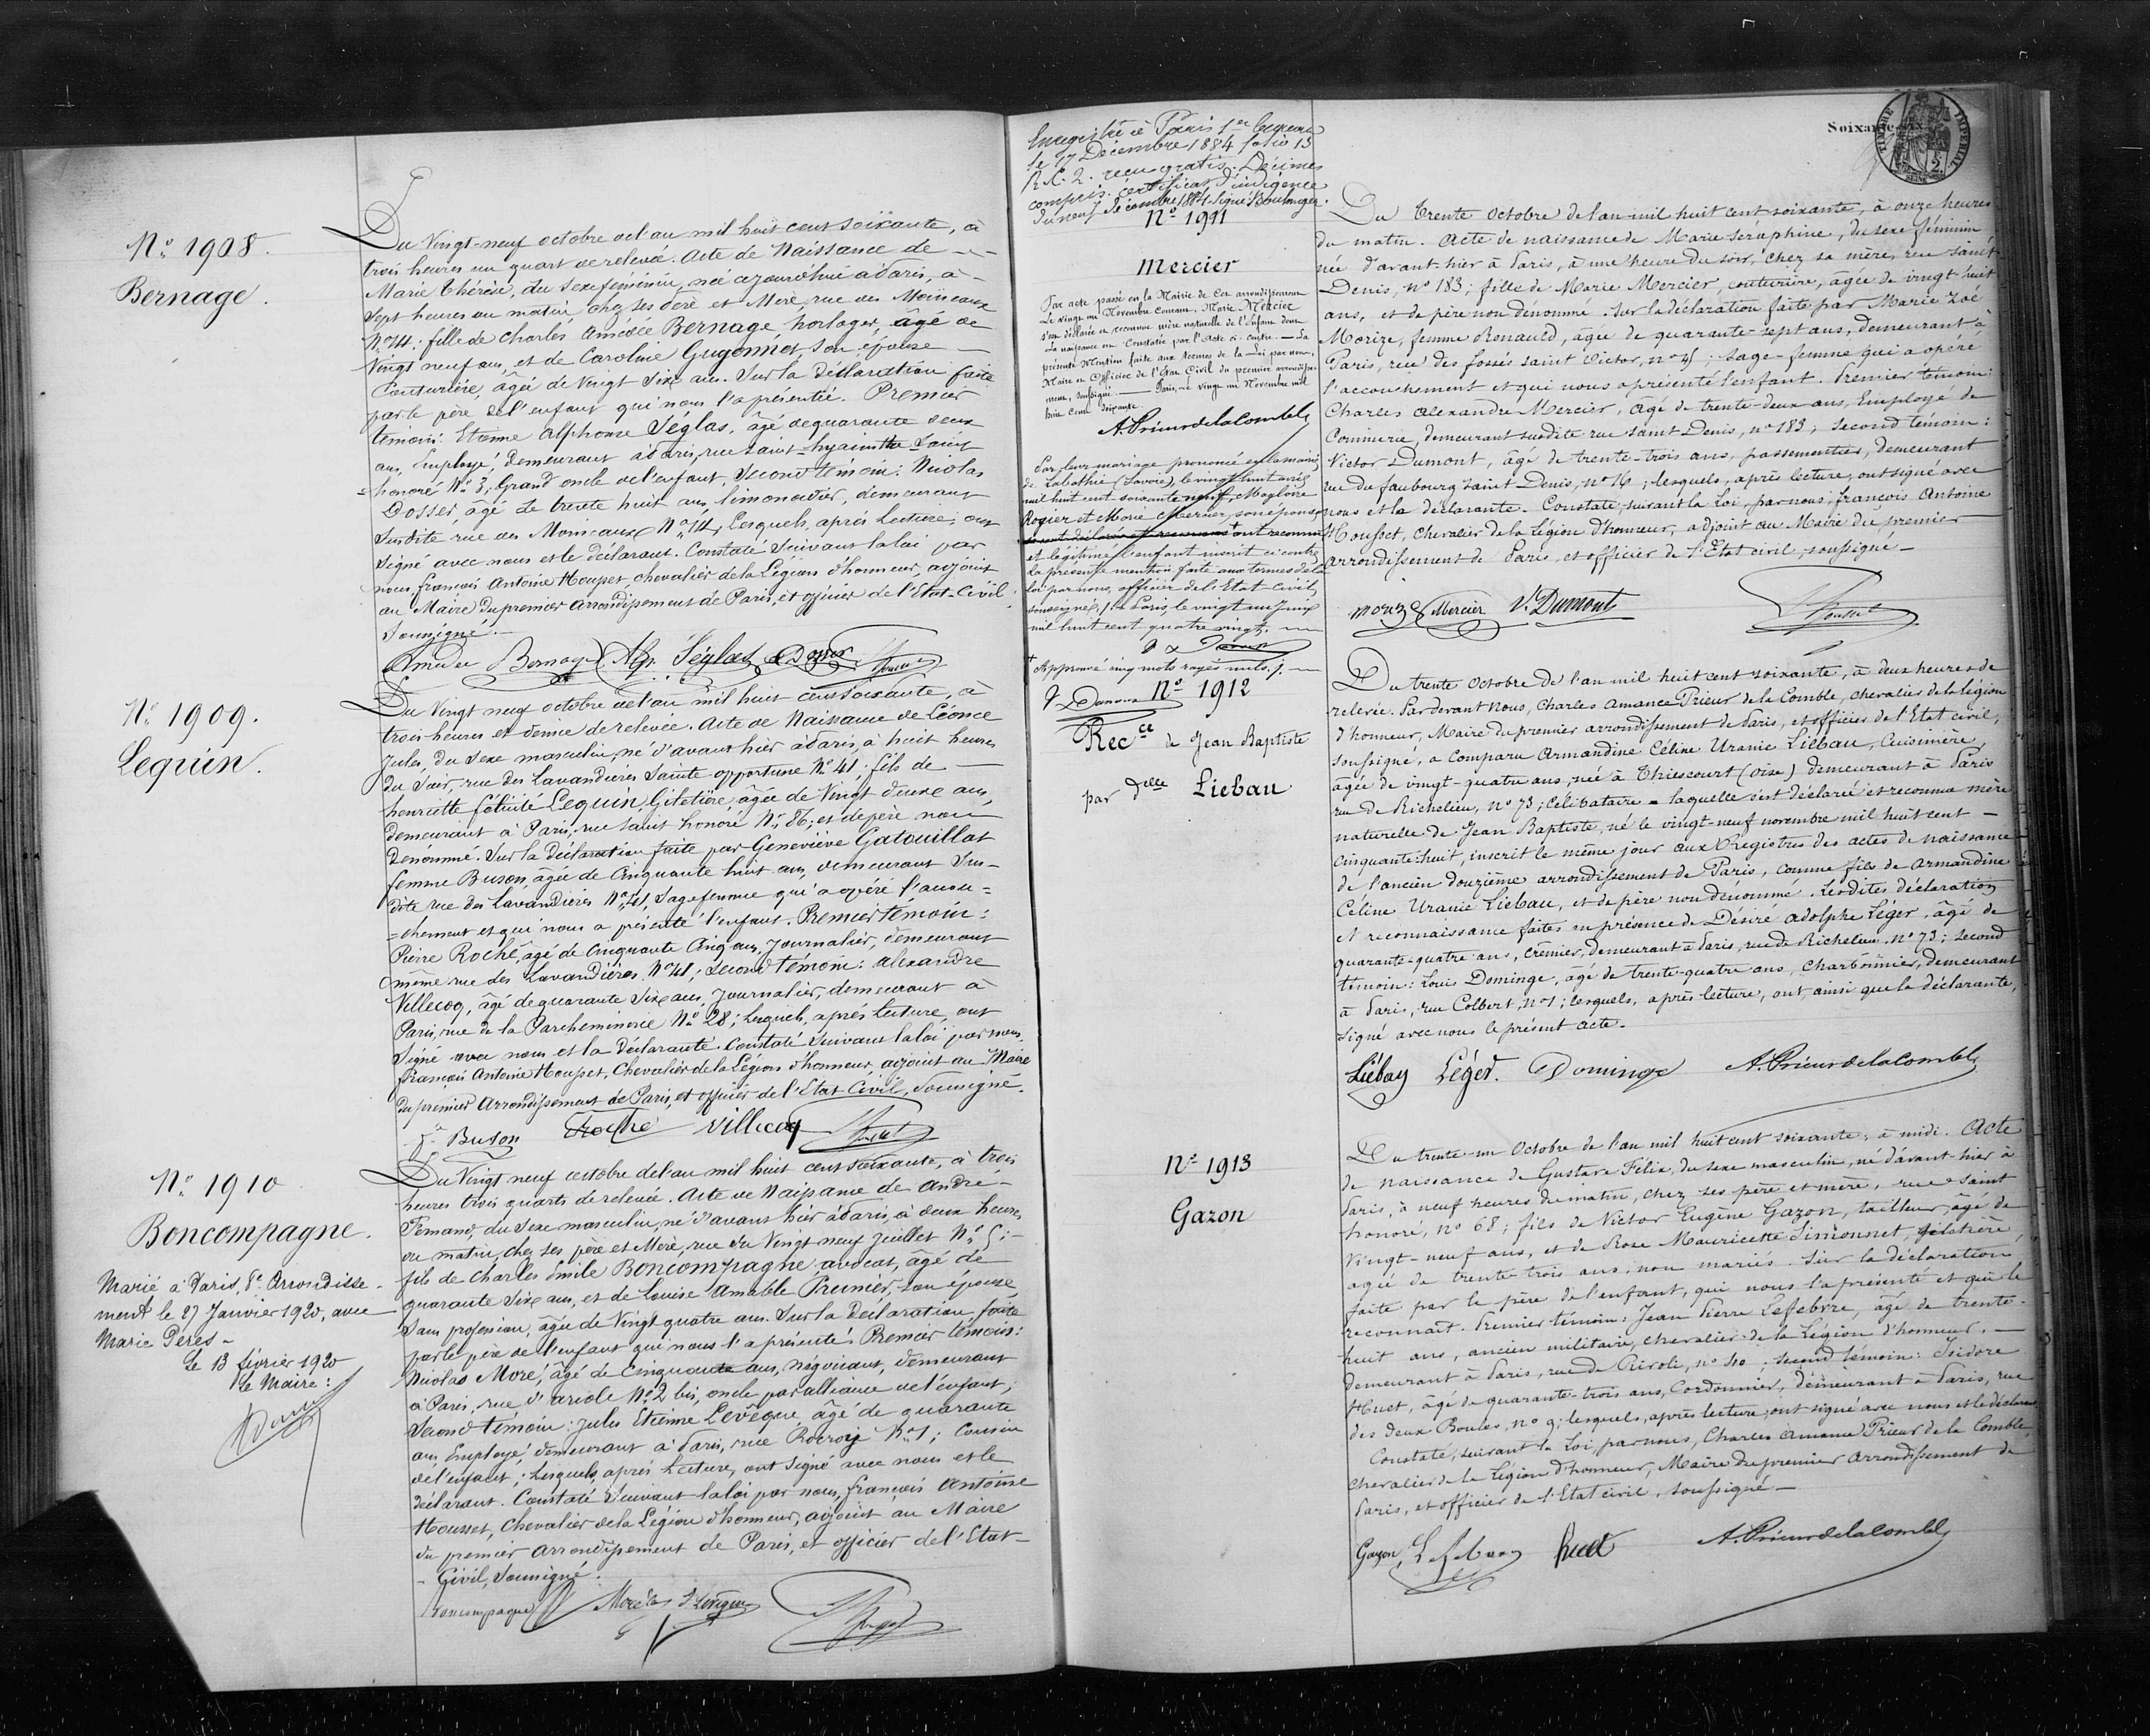 Nº 1908.
Bernage.
Du Vingt-neuf octobre del'an mil huit cent soixante, à
trois heures un quart de relevée. Acte de Naissance de
Marie Thérèse, du sexe féminin, née aujourd'hui à Paris, à
Sept heures du matin, chez ses père et Mère, rue des Moineaux
Nº 14; fille de Charles Amédée Bernage, horloger, âgé de
Vingt neuf ans, et de Caroline son épouse
Couturière, âgée de Vingt Six ans. Sur la Déclaration faite
par le père de l'enfant qui nous l'a présenté. Premier
témoin: Etienne Alphonse Séglas, âgé de quarante deux
ans, Employé, demeurant à Paris, rue Saint-hyacinthe Saint
=honoré Nº 3, Grand oncle de l'enfant, Second témoin: Nicolas
Dosser, âgé de trente huit ans, limonadier, demeurant
Susdite rue des Moineaux Nº 14, Lesquels, après Lecture, ont
Signé avec nous et le déclarant. Constaté Suivant la loi par
nous françois Antoine Housset, chevalier de la Légion d'honneur, adjoint
au Maire du premier Arrondissement de Paris, et officier de l'Etat-Civil,
Soussigné.
Amédée Bernage Alp. Séglas Dosser Housset
Nº 1909.
Lequin.
Du Vingt neuf octobre del'an mil huit cent soixante, à
trois heures et demie de relevée. Acte de Naissance de Léonce
Jules, du Sexe masculin, né d'avant hier à Paris, à huit heures
du Soir, rue des Lavandières Sainte opportune Nº 41; fils de
henriette félicité Lequin, Giletière, âgée de Vingt deux ans,
demeurant à Paris, rue Saint honoré Nº 86; et de père non
Dénommé. Sur la Déclaration faite par Geneviève Gatouillat
femme Buson, âgée de Cinquante huit ans, demeurant Sus-
dite rue des Lavandières Nº 41, Sagefemme qui a opéré l'accou=
=chement et qui nous a présenté l'enfant. Premier témoin:
Pierre Roché, âgé de Cinquante Cinq ans, Journalier, demeurant
même rue des Lavandières Nº 41; Second témoin: Alexandre
Villecoq, âgé de quarante Six ans, Journalier, demeurant à
Paris, rue de la Parcheminerie Nº 28; Lesquels, après Lecture, ont
Signé avec nous et la Déclarante. Constaté Suivant la loi par nous
françois Antoine Housset, Chevalier de la Légion d'honneur, adjoint au Maire
du premier Arrondissement de Paris, et officier de l'Etat Civil, Soussigné.
fe Buson Roché Villecoq Housset
Nº 1910
Boncompagne.
Marié à Paris, 8e Arrondisse-
ment le 27 Janvier 1920, avec
Marie Peres -
Le 13 février 1920
Le Maire:
Du Vingt neuf octobre del'an mil huit cent soixante, à trois
heures trois quarts de relevée. Acte de Naissance de André-
Fernand, du Sexe masculin, né d'avant hier à Paris, à deux heures
du matin, chez ses père et Mère, rue du Vingt neuf Juillet Nº 5;
fils de Charles Emile Boncompagne, avocat, âgé de
quarante Six ans, et de Louise Amable Prunier, Son épouse,
Sans profession, âgée de Vingt quatre ans. Sur la Déclaration faite
par le père de l'enfant qui nous l'a présenté. Premier témoin:
Nicolas Moré, âgé de Cinquante ans, Négociant, demeurant
à Paris, rue Nº 2 bis, oncle par alliance de l'enfant;
Second témoin: Jules Etienne Levêque, âgé de quarante
ans, Employé, demeurant à Paris, rue Rocroy Nº 1; Cousin
de l'enfant; Lesquels, après Lecture, ont Signé avec nous et le
déclarant. Constaté Suivant la loi par nous, françois Antoine
Housset, Chevalier de la Légion d'honneur, adjoint au Maire
du premier Arrondissement de Paris, et officier de l'Etat-
-Civil, Soussigné.
Boncompagne Moré Housset
Soixante
TIMBRE IMPERIAL
SEINE
Enregistré à Paris 1er bureau
le 17 Décembre 1884 folio 13
R. C. 2. reçu gratis. Décimes
compris. certificat d'indigence
du neuf Décembre 1884. Signé: Boulanger.
Nº 1911
Mercier
Par acte passé en la Mairie de cet arrondissement
Le vingt un Novembre courant, Marie Mercier
s'est déclarée et reconnue mère naturelle de l'Enfant dont
La naissance est Constatée par l'Acte ci-contre. — La
présente Mention faite aux termes de la Loi par nous,
Maire et Officier de l'Etat Civil du premier arrondisse-
ment, soussigné. — Paris, ce vingt un Novembre mil
huit cent soixante
A. Prieur de la Comble
Par leur mariage prononcé en la mairie
de Labathie (Savoie), le vingt huit avril
mil huit cent soixante neuf, Magloire
Rogier et Marie Mercier, son épouse
se sont déclarés et reconnus + ont reconnu
et légitimé l'enfant inscrit ci contre
La présente mention faite aux termes de la
loi par nous, officier de l'Etat-Civil,
soussigné, à Paris, le vingt un Juin
mil huit cent quatre vingt.
+ Approuvé cinq mots rayés nuls.
Du trente Octobre de l'an mil huit cent soixante, à onze heures
du matin. Acte de naissance de Marie Séraphine, du sexe féminin,
née d'avant-hier à Paris, à une heure du soir, chez sa mère, rue Saint
Denis, nº 183; fille de Marie Mercier, couturière, âgée de vingt-huit
ans, et de père non dénommé. Sur la déclaration faite par Marie Zoé
Morize, femme Renauld, âgée de quarante-sept ans, demeurant à
Paris, rue des fossés Saint Victor, nº 45; Sage-femme qui a opéré
l'accouchement et qui nous a présenté l'enfant. Premier témoin:
Charles Alexandre Mercier, âgé de trente-deux ans, Employé de
Commerce, demeurant susdite rue Saint Denis, nº 183; Second témoin:
Victor Dumont, âgé de trente-trois ans, passementier, demeurant
rue du faubourg Saint Denis, nº 16; lesquels, après lecture, ont signé avec
nous et la déclarante. Constaté, suivant la Loi, par nous, françois Antoine
Housset, Chevalier de la Légion d'honneur, adjoint au Maire du premier
arrondissement de Paris, et officier de l'Etat civil, soussigné —
Morize Mercier V. Dumont Housset
Nº 1912
Recce de Jean Baptiste
par delle Liebau
Du trente Octobre de l'an mil huit cent soixante, à deux heures de
relevée. Par devant Nous, Charles Amance Prieur de la Comble, Chevalier de la Légion
d'honneur, Maire du premier arrondissement de Paris, et officier de l'Etat civil,
soussigné, a comparu Armandine Céline Uranie Liebau, Cuisinière,
âgée de vingt-quatre ans, née à Thiescourt (Oise) demeurant à Paris
rue de Richelieu, nº 73; Célibataire = laquelle s'est déclarée et reconnue mère
naturelle de Jean Baptiste, né le vingt-neuf novembre mil huit cent
cinquante-huit, inscrit le même jour aux Registres des actes de naissance
de l'ancien douzième arrondissement de Paris, comme fils de Armandine
Céline Uranie Liebau, et de père non dénommé. Lesdites déclaration
et reconnaissance faites en présence de Désiré Adolphe Léger, âgé de
quarante-quatre ans, crémier, demeurant à Paris, rue de Richelieu, nº 73; Second
témoin: Louis Dominge, âgé de trente-quatre ans, Charbonnier, demeurant
à Paris, rue Colbert, nº 1; lesquels, après lecture, ont, ainsi que la déclarante,
signé avec nous le présent acte.
Liébau Léger. Dominge A. Prieur de la Comble
Nº 1913
Gazon
Du trente-un Octobre de l'an mil huit cent soixante, à midi. Acte
de naissance de Gustave Félix, du sexe masculin, né d'avant-hier à
Paris, à neuf heures du matin, chez ses père et mère, rue Saint
honoré, nº 68; fils de Victor Eugène Gazon, tailleur, âgé de
vingt-neuf ans, et de Rose Mauricette Simonnet, giletière,
âgée de trente-trois ans, non mariés. Sur la déclaration
faite par le père de l'enfant, qui nous l'a présenté et qui le
reconnaît. Premier témoin: Jean Pierre Lefebvre, âgé de trente-
huit ans, ancien militaire, chevalier de la Légion d'honneur,
demeurant à Paris, rue de Rivoli, nº 40; Second témoin: Isidore
Huet, âgé de quarante-trois ans, Cordonnier, demeurant à Paris, rue
des Deux Boules, nº 9; lesquels, après lecture, ont signé avec nous et le déclarant
Constaté, suivant la Loi, par nous, Charles Amance Prieur de la Comble,
chevalier de la Légion d'honneur, Maire du premier arrondissement de
Paris, et officier de l'Etat civil, soussigné —
Gazon Lefebvre huet A. Prieur de la Comble